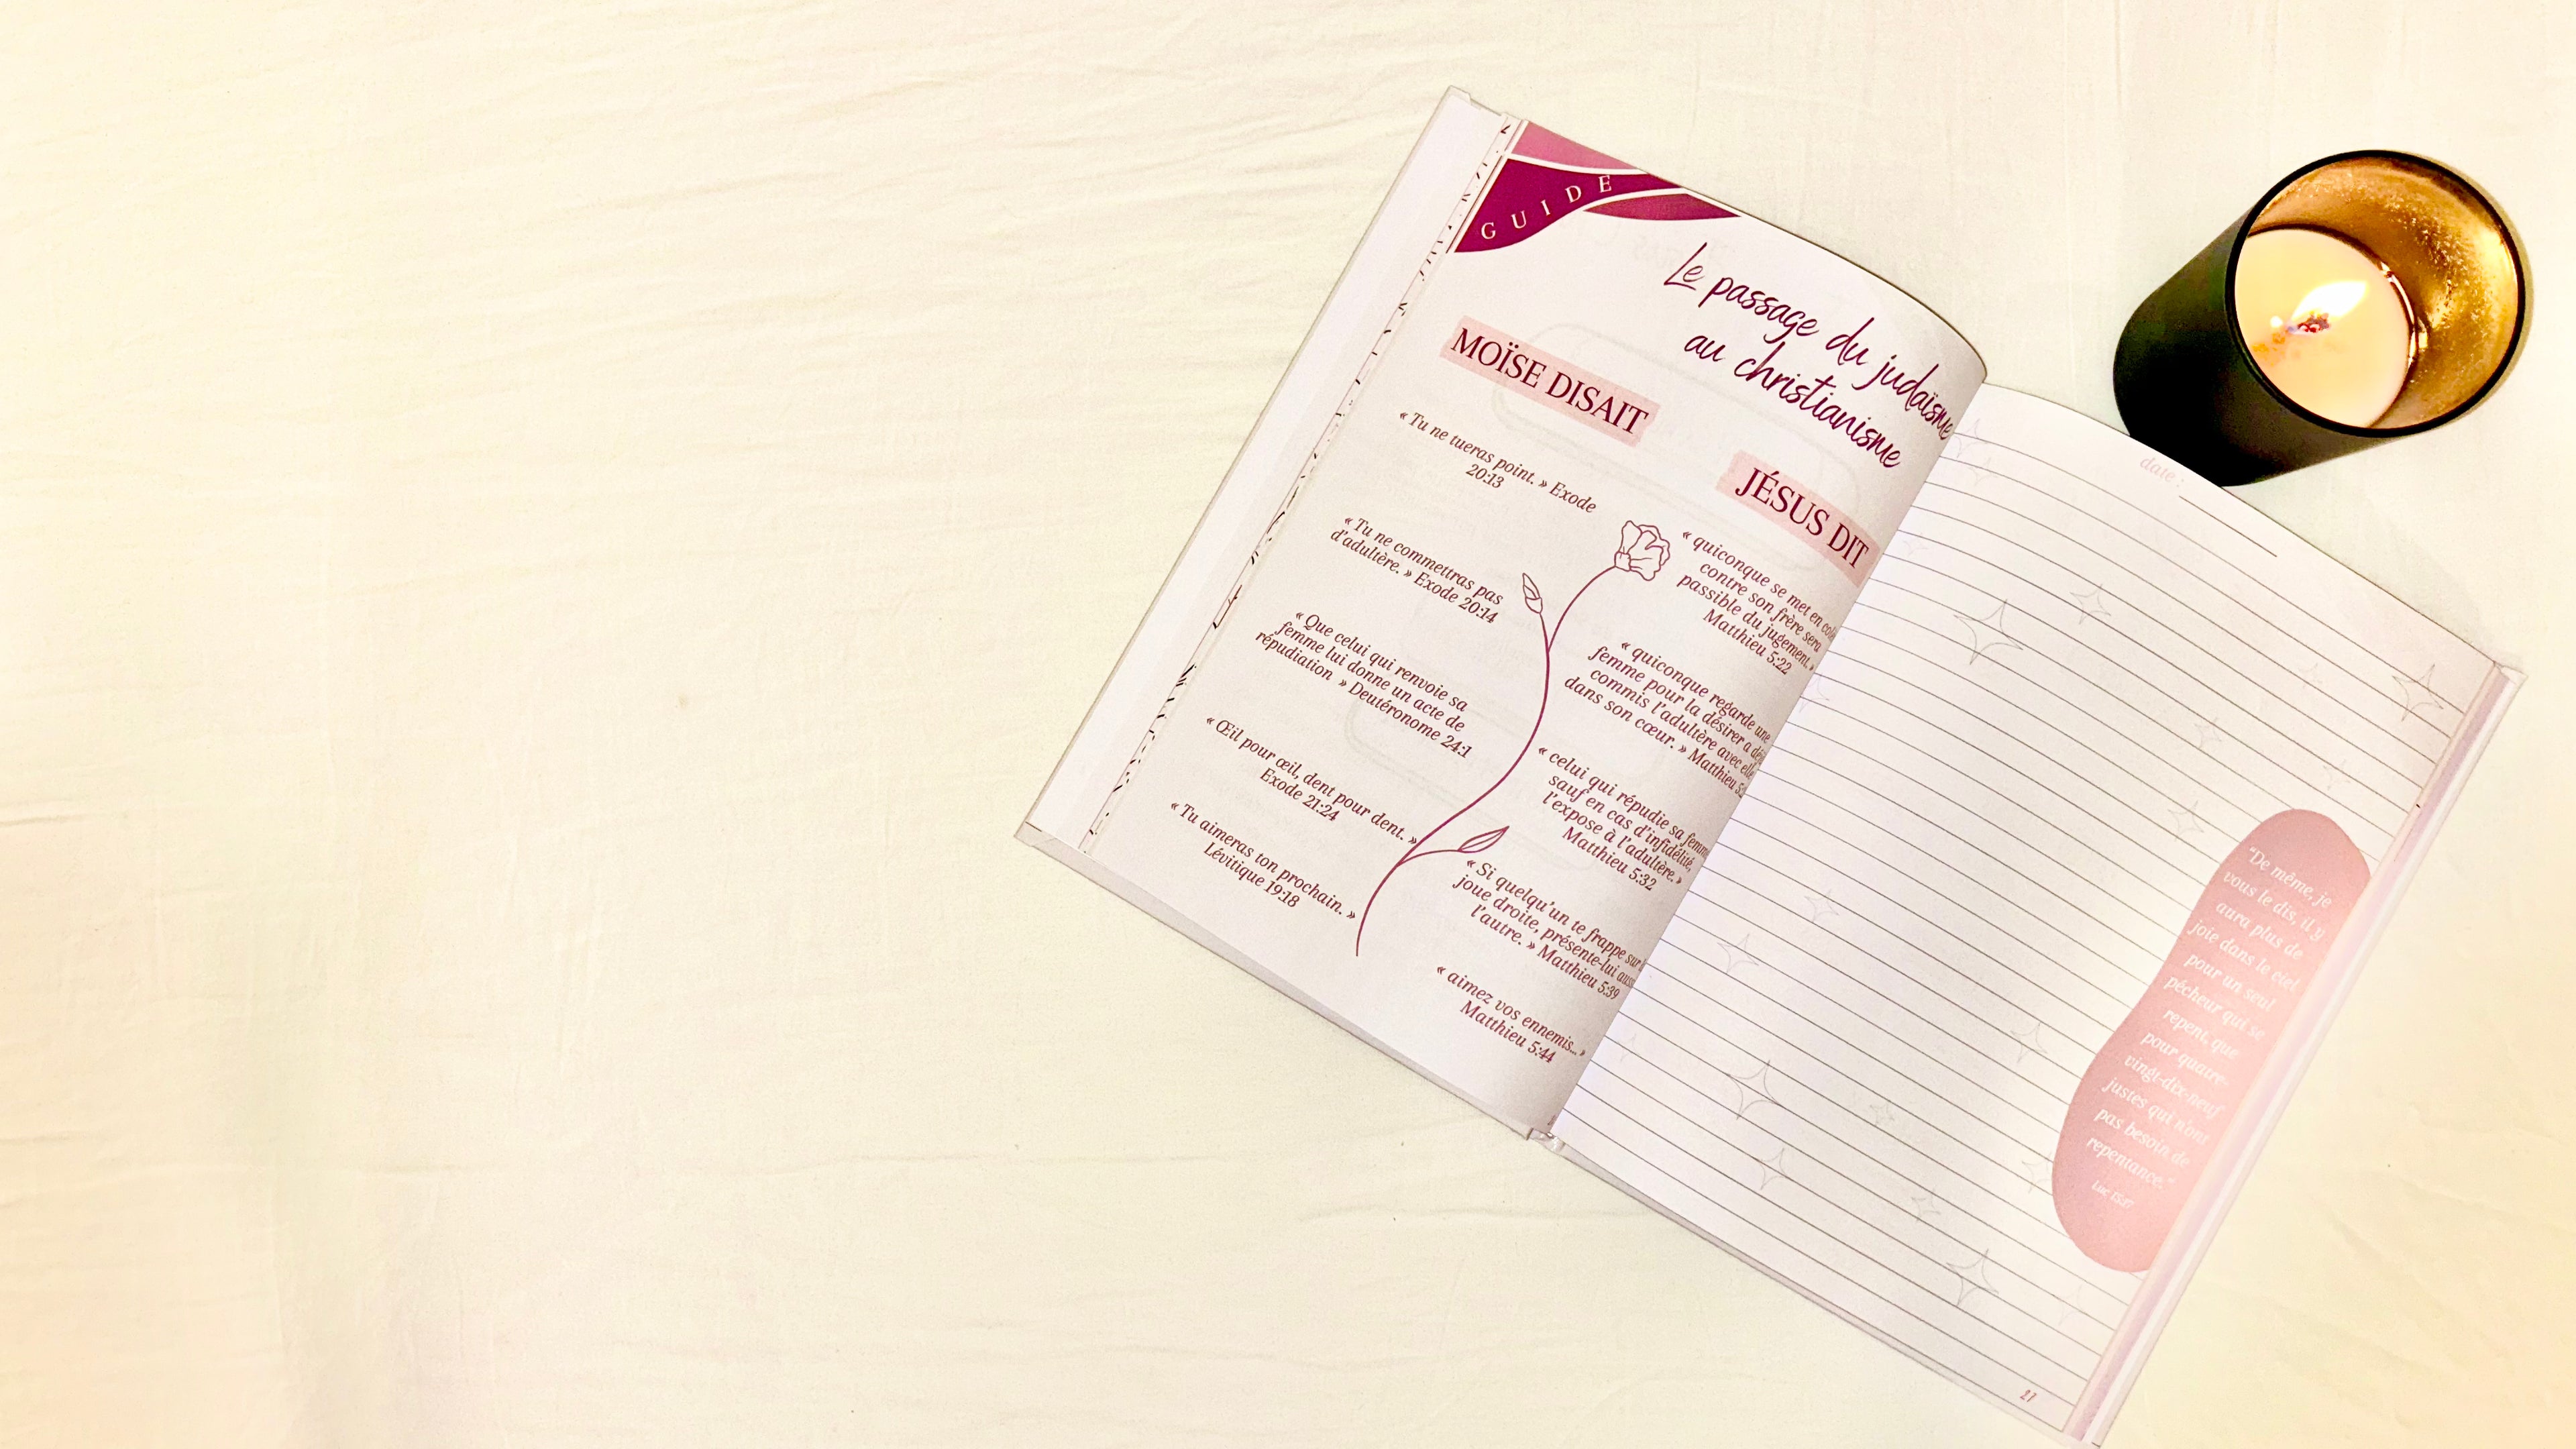 GUIDE
Le passage du judaïsme
au christianisme
MOÏSE DISAIT
« Tu ne tueras point. » Exode
20:13
« Tu ne commettras pas
d'adultère. » Exode 20:14
« Que celui qui renvoie sa
femme lui donne un acte de
répudiation » Deutéronome 24:1
« Œil pour œil, dent pour dent. »
Exode 21:24
« Tu aimeras ton prochain. »
Lévitique 19:18
JÉSUS DIT
« quiconque se met en
contre son frère sera
passible du jugement. »
Matthieu 5:22
« quiconque regarde une
femme pour la désirer a
commis l'adultère avec
dans son cœur. » Matthieu
« celui qui répudie sa
sauf en cas d'infidélité,
l'expose à l'adultère. »
Matthieu 5:32
« Si quelqu'un te frappe sur
joue droite, présente-lui
l'autre. » Matthieu 5:39
« aimez vos ennemis... »
Matthieu 5:44
date :
"De même, je
vous le dis, il y
aura plus de
joie dans le ciel
pour un seul
pécheur qui se
repent, que
pour quatre-
vingt-dix-neuf
justes qui n'ont
pas besoin de
repentance."
Luc
27